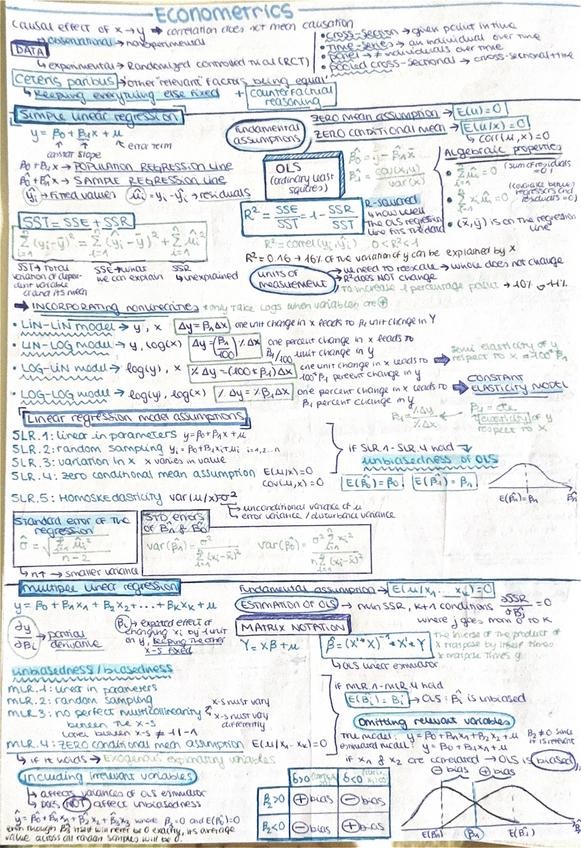 ECONOMETRICS
causal effect of x → y → correlation does not mean causation
DATA
→ observational → nonexperimental
→ experimental → Randomized controlled trial (RCT)
• cross-section → given point in time
• Time-series → an individual over time
• panel → ≠ individuals over time
• pooled cross-sectional → cross-sectional + time
ceteris paribus → other relevant factors being equal
↳ keeping everything else fixed + counterfactual reasoning
Simple linear regression
y = β0 + β1x + u
constant slope error term
β0 + β1x → POPULATION REGRESSION LINE
β̂0 + β̂1x → SAMPLE REGRESSION LINE
ŷi → fitted values ûi = yi - ŷi → residuals
fundamental assumptions
ZERO mean assumption → E(u)=0
ZERO conditional mean → E(u/x)=0
↳ cov(u,x)=0
OLS
(ordinary least squares)
β̂0 = ȳ - β̂1x̄
β̂1 = cov(x,y) / var(x)
Algebraic properties
Σ ûi = 0 (sum of residuals =0)
Σ xi ûi = 0
• (x̄,ȳ) is on the regression line
SST = SSE + SSR
Σ (yi-ȳ)² = Σ (ŷi-ȳ)² + Σ ûi²
SST → total variation of dependent variable around its mean
SSE → what we can explain
SSR ↳ unexplained
R² = SSE / SST = 1 - SSR / SST
R-squared
↳ how well the OLS regression line fits the data
R² = correl(yi,ŷi) 0<R²<1
R² = 0.16 → 16% of the variation of y can be explained by x
units of measurement
→ if need to rescale → whole does not change
→ R² does not change
→ to increase 1 percentage point → 10% → 11%
→ INCORPORATING NONLINEARITIES → only take logs when variables are ⊕
• LIN-LIN model → y, x Δy = β1Δx one unit change in x leads to β1 unit change in y
• LIN-LOG model → y, log(x) Δy = (β1/100)%Δx one percent change in x leads to β1/100 unit change in y
• LOG-LIN model → log(y), x %Δy = (100*β1)Δx one unit change in x leads to 100*β1 percent change in y → semi elasticity of y respect to x = 100*β1
• LOG-LOG model → log(y), log(x) %Δy = %β1Δx one percent change in x leads to β1 percent change in y → CONSTANT ELASTICITY MODEL
β1 = %Δy / %Δx ← elasticity of y respect to x
Linear regression model assumptions
SLR.1: linear in parameters y=β0+β1x+u
SLR.2: random sampling yi=β0+β1xi+ui i=1,2...n
SLR.3: variation in x x varies in value
SLR.4: zero conditional mean assumption E(u/x)=0 cov(u,x)=0
SLR.5: Homoskedasticity var(u/x)=σ²
↳ unconditional variance of u
↳ error variance / disturbance variance
if SLR.1 - SLR.4 hold →
unbiasedness of OLS
E(β̂0)=β0, E(β̂1)=β1
E(β̂1)=β1
Standard error of the regression
σ̂ = √ Σ ûi² / n-2
↳ n↑ → smaller variance
STD. errors of β̂1 & β̂0
var(β̂1) = σ² / Σ(xi-x̄)² var(β̂0) = σ² Σ xi² / n Σ(xi-x̄)²
multiple linear regression
y = β0 + β1x1 + β2x2 + ... + βkxk + u
→ partial derivative
→ expected effect of changing x1 by 1 unit on y, keeping the other x-s fixed
Fundamental assumption → E(u/x1...xk)=0
ESTIMATION OF OLS → min SSR, k+1 conditions ∂SSR/∂β̂j = 0
where j goes from 0 to k
MATRIX NOTATION
Y = Xβ + u
β̂ = (X'*X)⁻¹*X'*Y
↳ OLS linear estimator
the inverse of the product of X transpose by itself times X transpose times y
unbiasedness/biasedness
MLR.1: linear in parameters
MLR.2: random sampling
MLR.3: no perfect multicollinearity between the x-s
→ x-s must vary
→ x-s must vary differently
correl between x-s ≠ +1/-1
MLR.4: ZERO conditional mean assumption E(u/x1...xk)=0
↳ if it holds → Exogenous explanatory variables
if MLR.1-MLR.4 hold
E(β̂i)=βi → OLS: β̂i is unbiased
Omitting relevant variables
True model: y=β0+β1x1+β2x2+u β2≠0 since it is relevant
estimated model: y=β0+β1x1+u
if x1 & x2 are correlated → OLS is biased
Including irrelevant variables
↳ affects variances of OLS estimator
↳ Does NOT affect unbiasedness
ŷ = β̂0 + β̂1x1 + β̂2x2 + β̂3x3 where β3=0 and E(β̂3)=0
even though β̂3 itself will never be 0 exactly, its average value across all random samples will be 0.
δ>0 δ<0
β2>0 ⊕bias ⊖bias
β2<0 ⊖bias ⊕bias
⊖ bias ⊕ bias
E(β̂1) β1 E(β̂1)